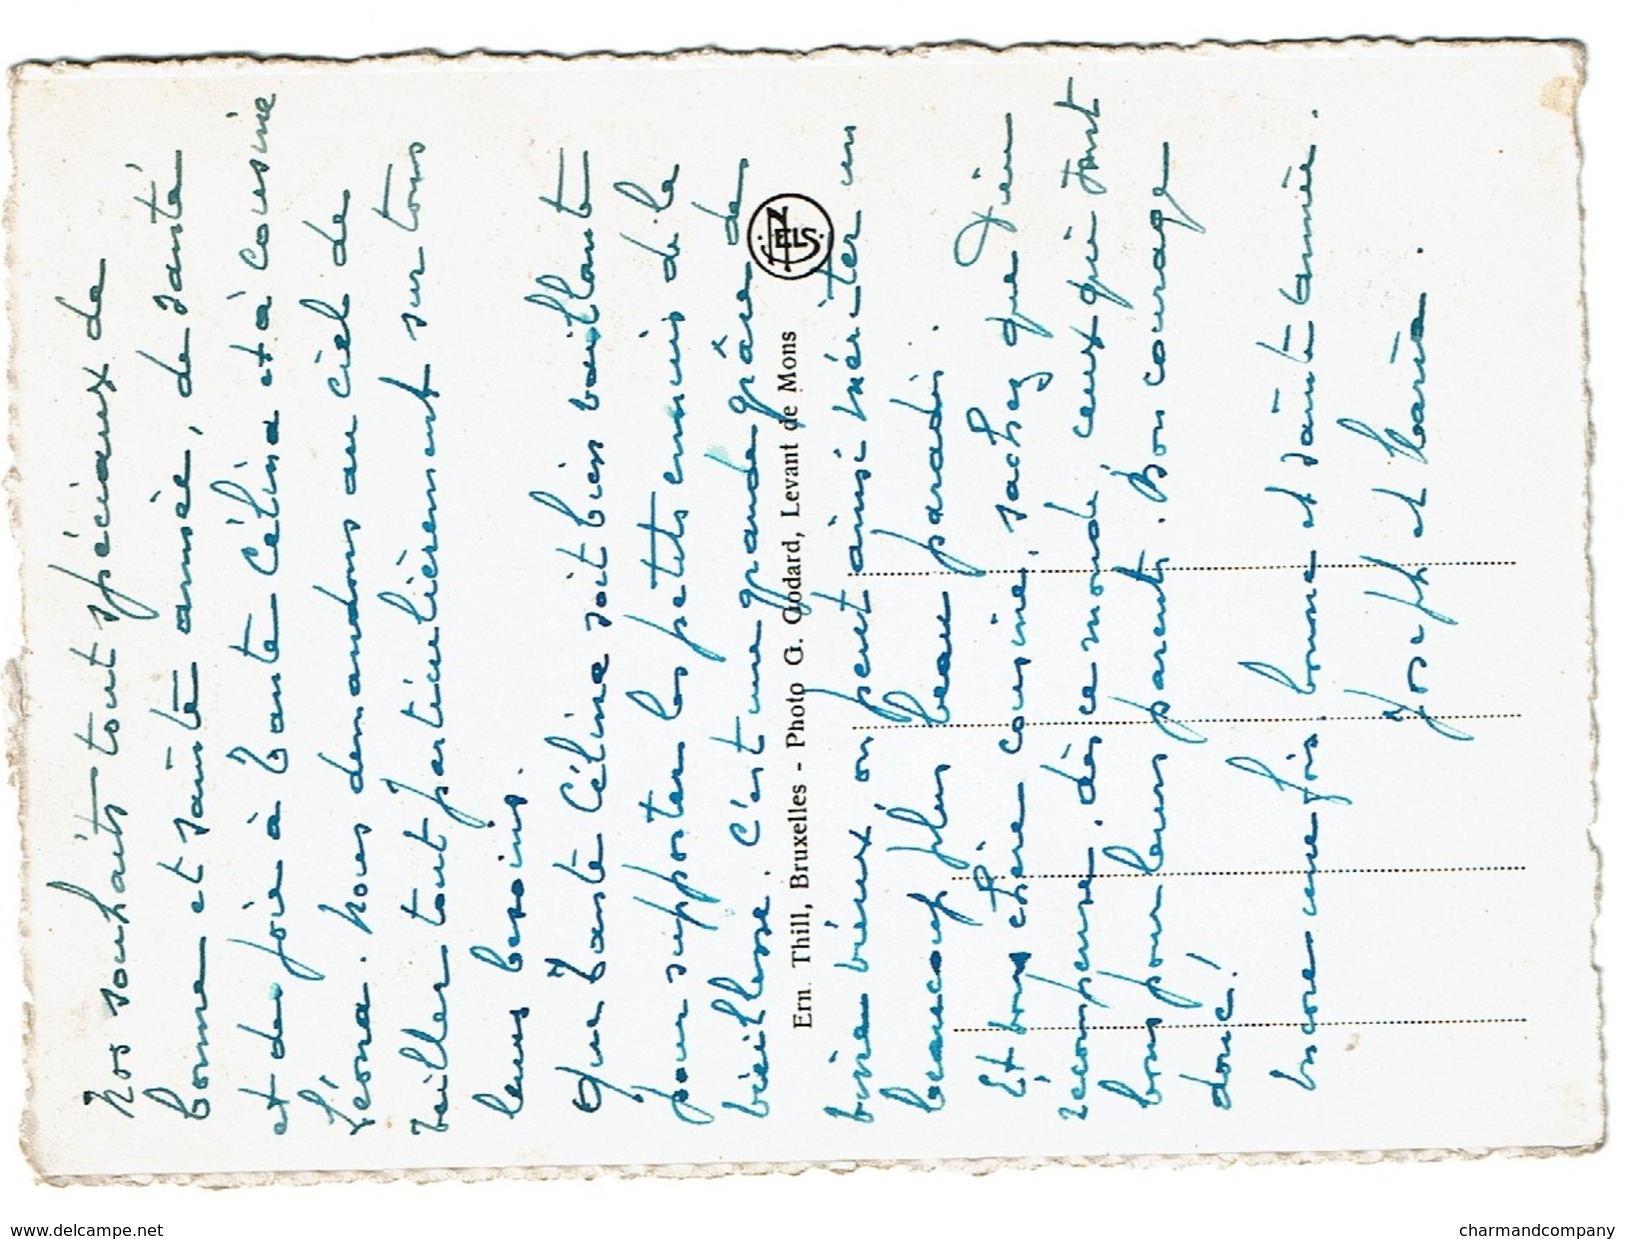 Nos souhaits tout spéciaux de
bonne et sainte année, de santé
et de joie à Tante Célina et à cousine
Léona. Nous demandons au ciel de
veiller tout particulièrement sur tous
leurs besoins.
Que Tante Céline soit bien vaillante
pour supporter les petits ennuis de la
vieillesse. C'est une grande grâce de
vivre vieux on peut ainsi mériter un
beaucoup plus beau paradis.
Et vous chère cousine, sachez que Dieu
récompense, dès ce monde ceux qui font
tous pour leurs parents. Bon courage
donc!
Encore une fois, bonne et sainte année.
Joseph et Maria.
Ern. Thill, Bruxelles - Photo G. Godard, Levant de Mons
NELS
www.delcampe.net
charmandcompany